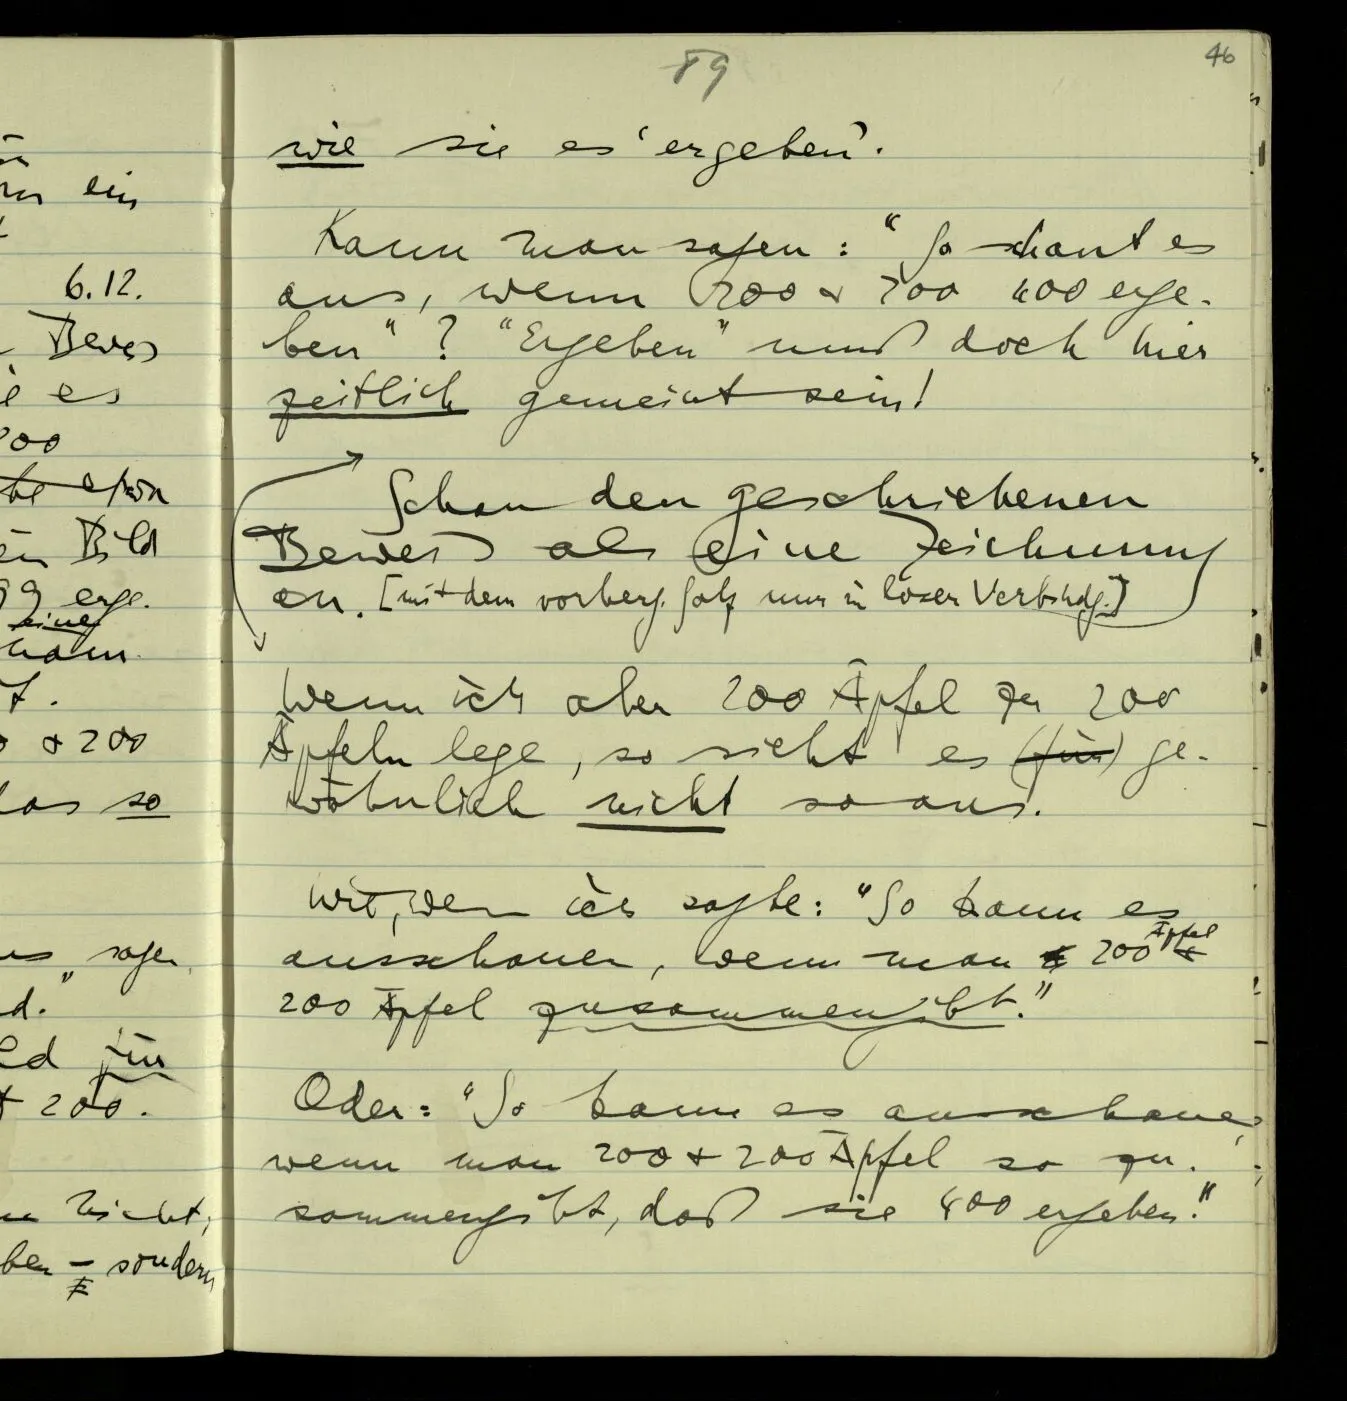 89
46
wie sie es 'ergeben'.
Kann man sagen: "So schaut es
aus, wenn 200 & 200 400 erge-
ben"? "Ergeben" muß doch hier
zeitlich gemeint sein!
Schau den geschriebenen
Beweis als eine Zeichnung
an. [mit dem vorherg. Satz nur in loser Verbindg.]
Wenn ich aber 200 Äpfel zu 200
Äpfeln lege, so sieht es (für) ge-
wöhnlich nicht so aus.
Wie, wenn ich sagte: "So kann es
ausschauen, wenn man 200 Äpfel &
200 Äpfel zusammengibt."
Oder: "So kann es ausschauen,
wenn man 200 & 200 Äpfel so zu-
sammengibt, daß sie 400 ergeben."
ein
6.12.
Beweis
es
200
etwa
Bild
99 erge-
eine
kann
& 200
das so
sagen
Bild für
200.
nicht,
ben – sondern